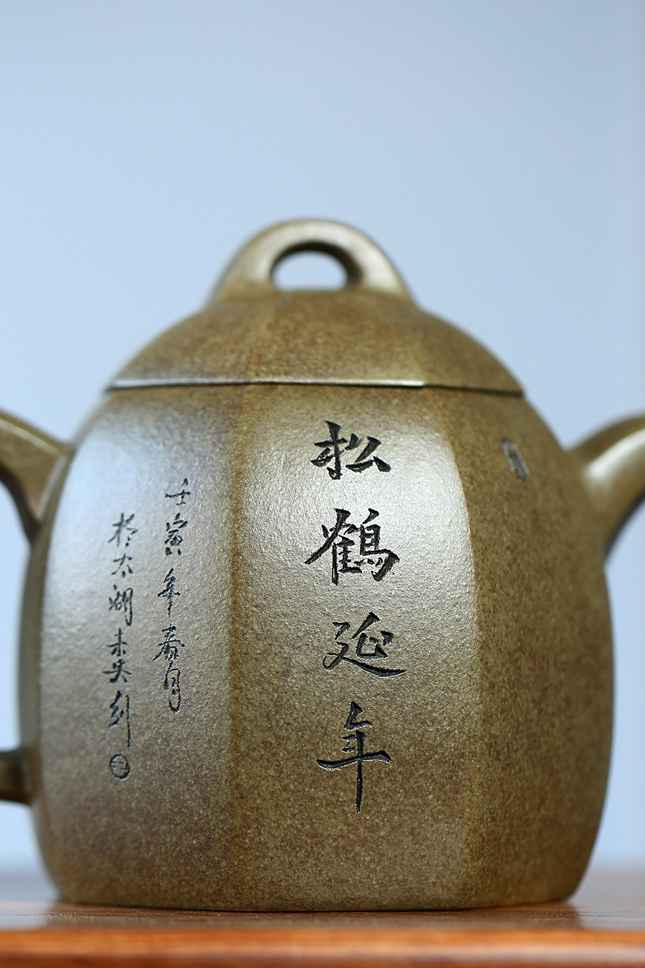 松鹤延年
壬寅年春月
於太湖未央刻